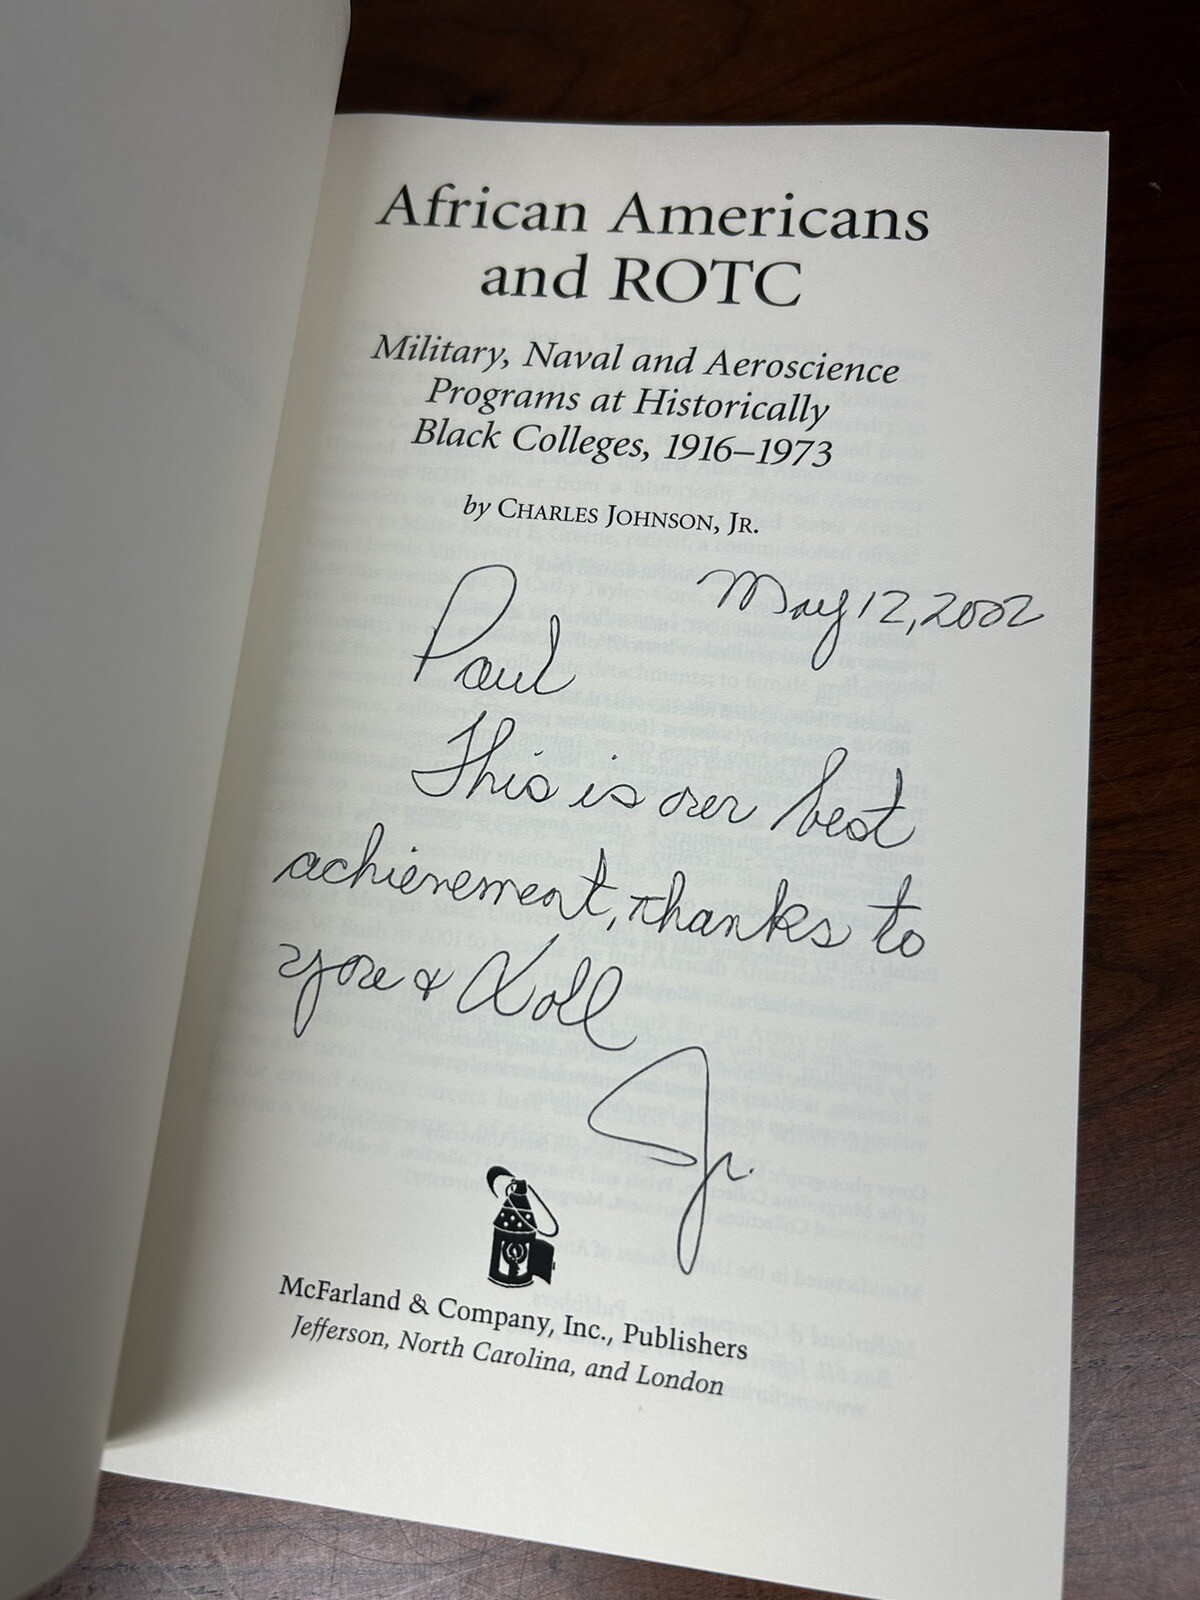 African Americans
and ROTC
Military, Naval and Aeroscience
Programs at Historically
Black Colleges, 1916–1973
by CHARLES JOHNSON, JR.
May 12, 2002
Paul
This is our best
achievement, thanks to
you &
Jr.
McFarland & Company, Inc., Publishers
Jefferson, North Carolina, and London